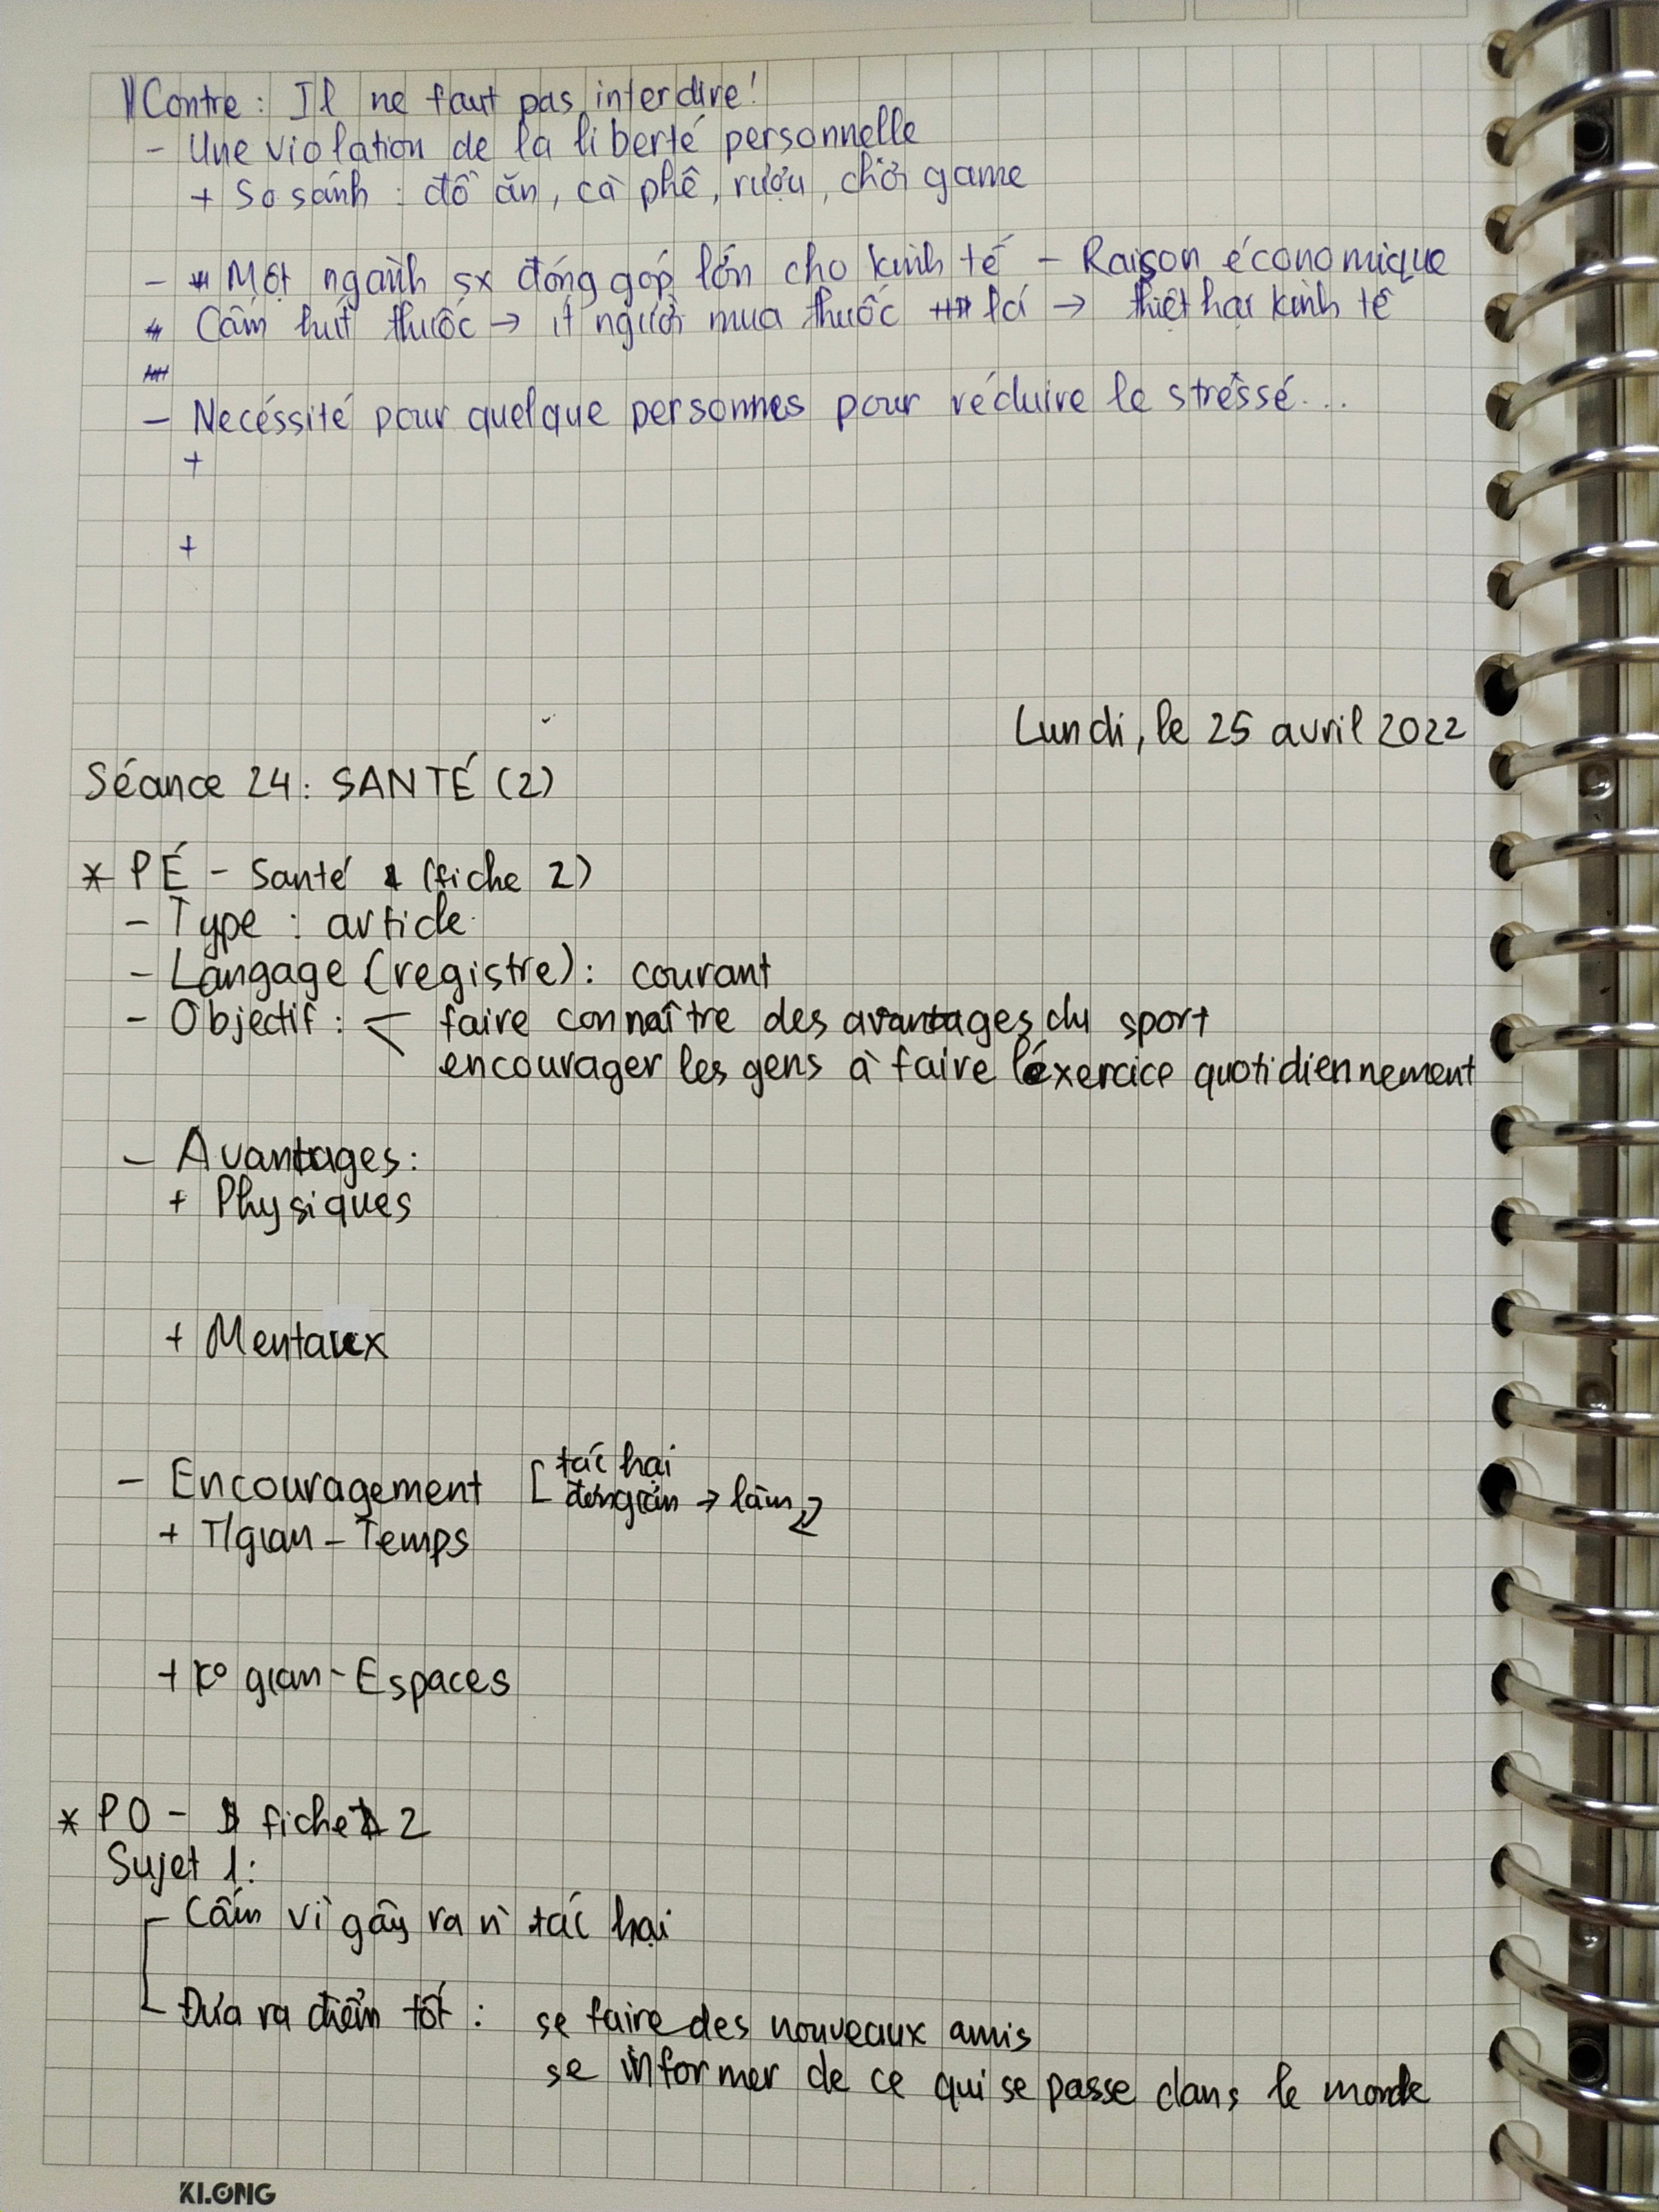 Contre : Il ne faut pas interdire !
- Une violation de la liberté personnelle
+ So sánh : đồ ăn, cà phê, rượu, chơi game
- Một ngành sx đóng góp lớn cho kinh tế - Raison économique
Cấm hút thuốc → ít người mua thuốc lá → thiệt hại kinh tế
- Necéssité pour quelque personnes pour réduire le stressé...
+
+
Lundi, le 25 avril 2022
Séance 24 : SANTÉ (2)
* PÉ - Santé (fiche 2)
- Type : article
- Langage (registre) : courant
- Objectif : faire connaître des avantages du sport
encourager les gens à faire l'éxercice quotidiennement
- Avantages :
+ Physiques
+ Mentaux
tác hại
- Encouragement đơn giản → làm
+ T/gian - Temps
+ Ko gian - Espaces
* PO - fiche 2
Sujet 1 :
- Cấm vì gây ra n` tác hại
- Đưa ra điểm tốt : se faire des nouveaux amis
se informer de ce qui se passe dans le monde
KLONG